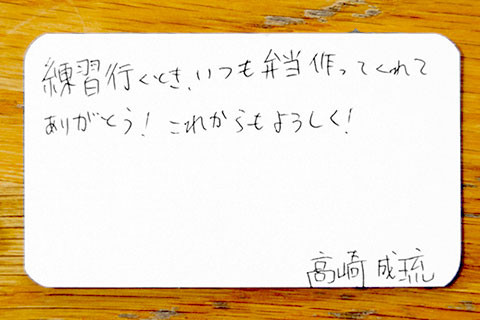 練習行くとき、いつも弁当作ってくれて
ありがとう！これからもよろしく！
高崎 成琉